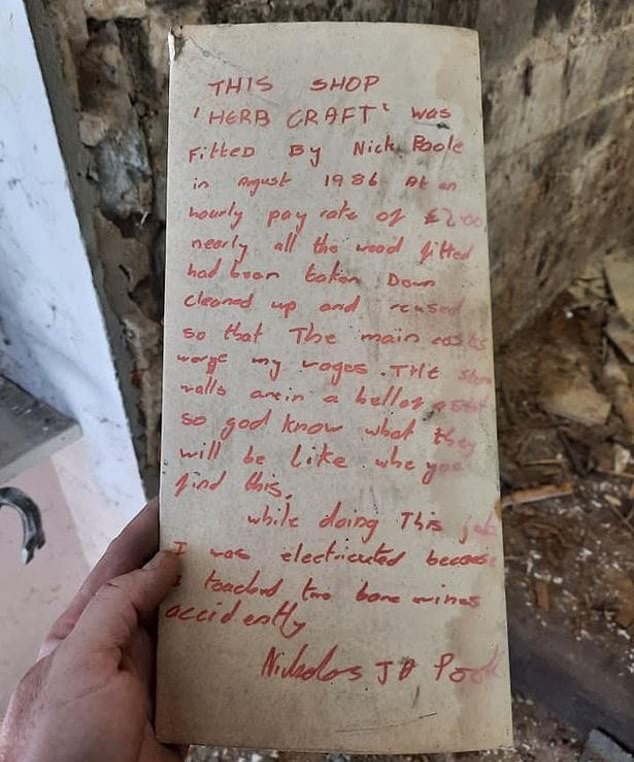 THIS SHOP
'HERB CRAFT' was
Fitted By Nick Poole
in August 1986 At an
hourly pay rate of £2.00
nearly all the wood fitted
had been taken Down
cleaned up and reused
so that The main costs
werge my wages. THE
walls are in a
so god know what they
will be like whe you
find this.
while doing This job
I was electricuted because
I touched two bare wires
accidently
Nicholas J